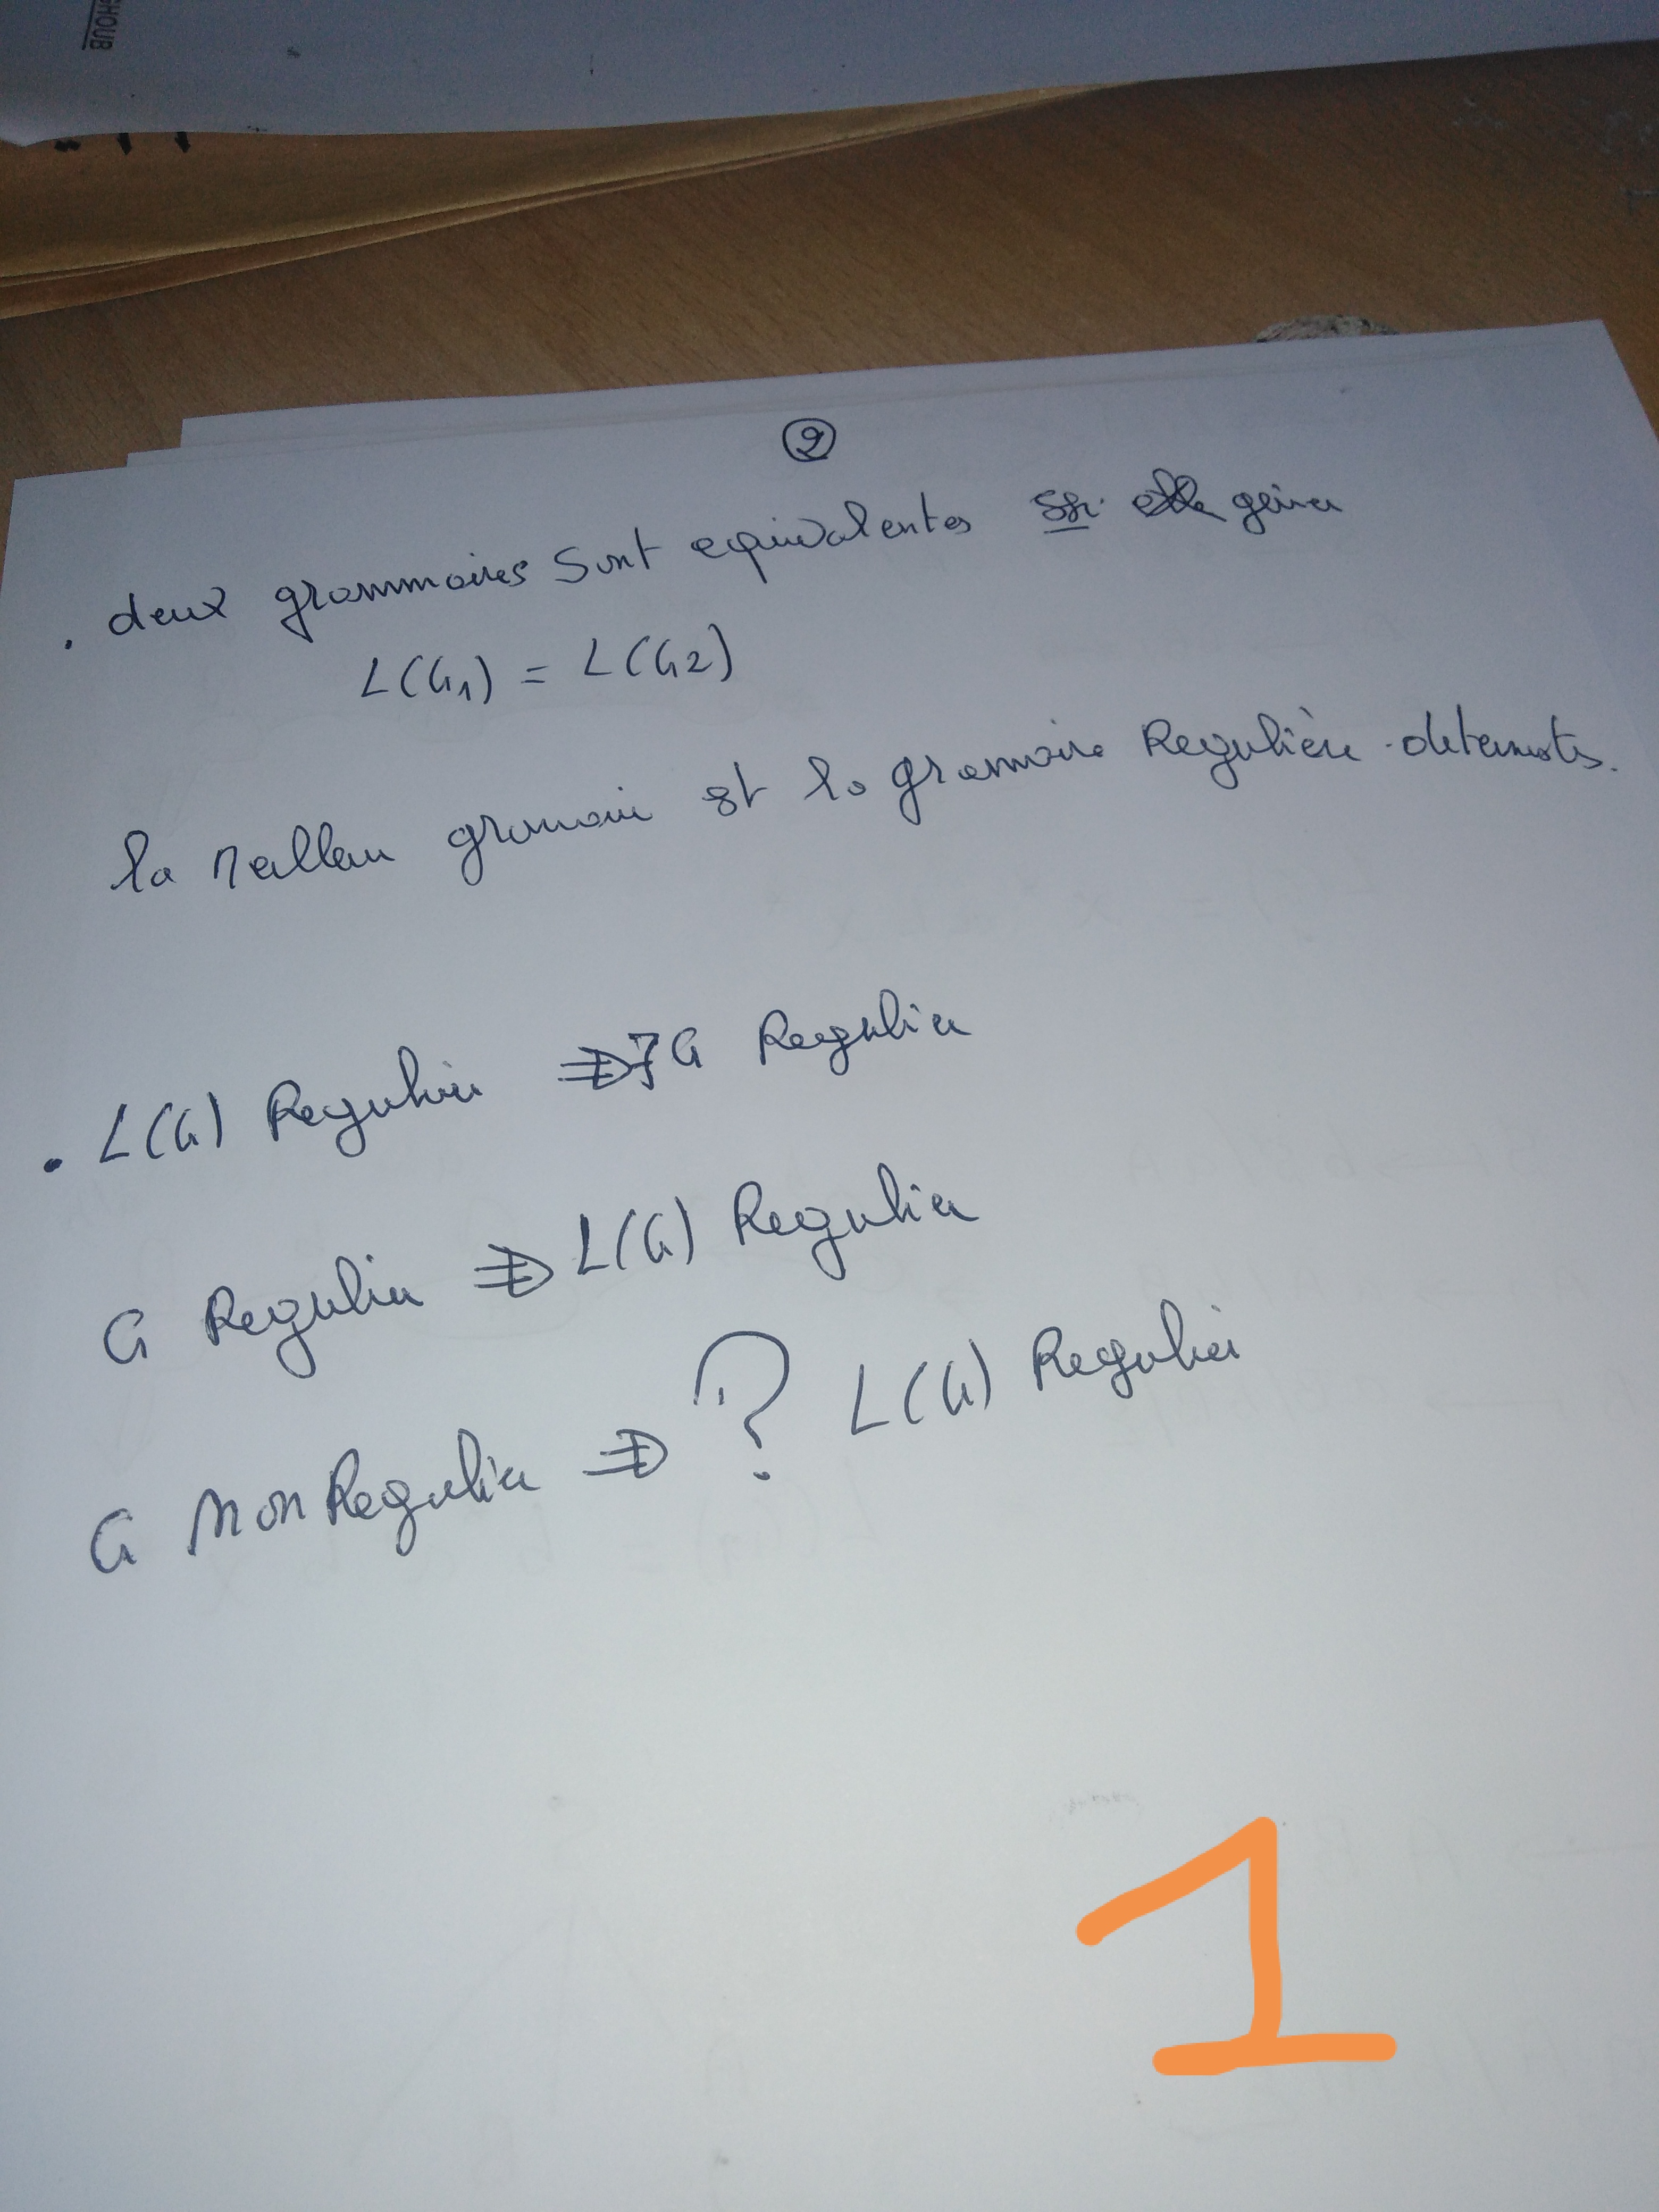 HOUB
2
. deux grammaires sont equivalentes ssi génèr
L(G1) = L(G2)
la meilleu grammaire est la grammaire Regulière
. L(G) Regulier ⇒ G Regulier
G Regulier ⇒ L(G) Regulier
G Non Regulier ⇒ ? L(G) Regulier
1